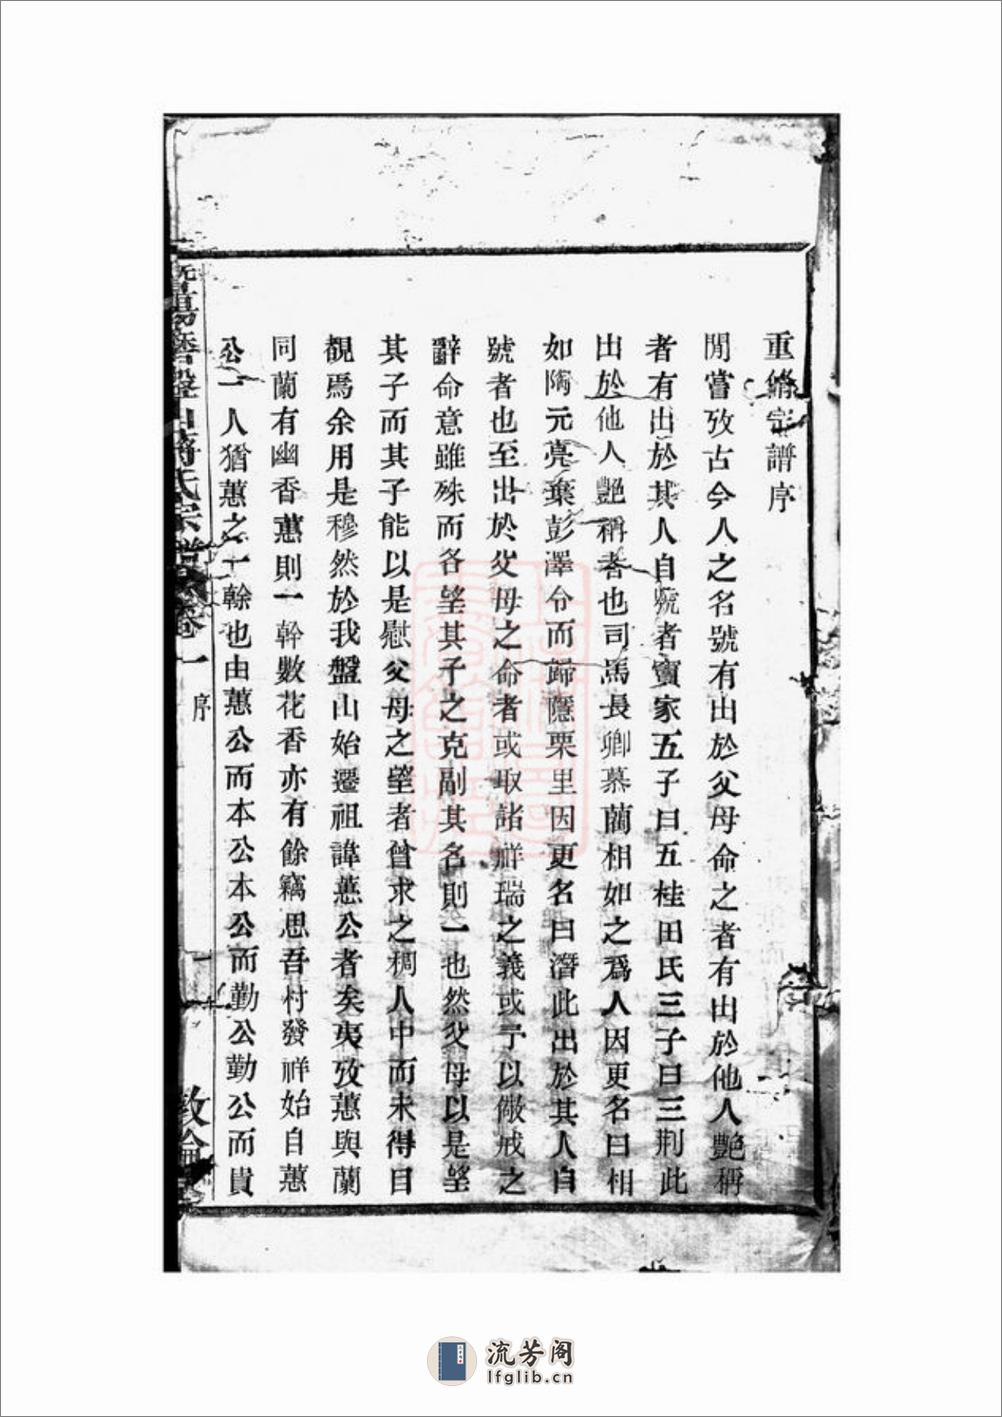 重脩宗譜序
閒嘗攷古今人之名號有出於父母命之者有出於他人艷稱
者有出於其人自號者竇家五子曰五桂田氏三子曰三荆此
出於他人艷稱者也司馬長卿慕藺相如之爲人因更名曰相
如陶元亮棄彭澤令而歸隱栗里因更名曰潛此出於其人自
號者也至出於父母之命者或取諸祥瑞之義或予以儆戒之
辭命意雖殊而各望其子之克副其名則一也然父母以是望
其子而其子能以是慰父母之望者曾求之稠人中而未得目
覩焉余用是穆然於我盤山始遷祖諱蕙公者矣夷攷蕙與蘭
同蘭有幽香蕙則一幹數花香亦有餘竊思吾村發祥始自蕙
公一人猶蕙之一榦也由蕙公而本公本公而勤公勤公而貴
暨陽 盤山蔣氏宗譜 卷一 序 一 敦倫
流芳阁
lfglib.cn